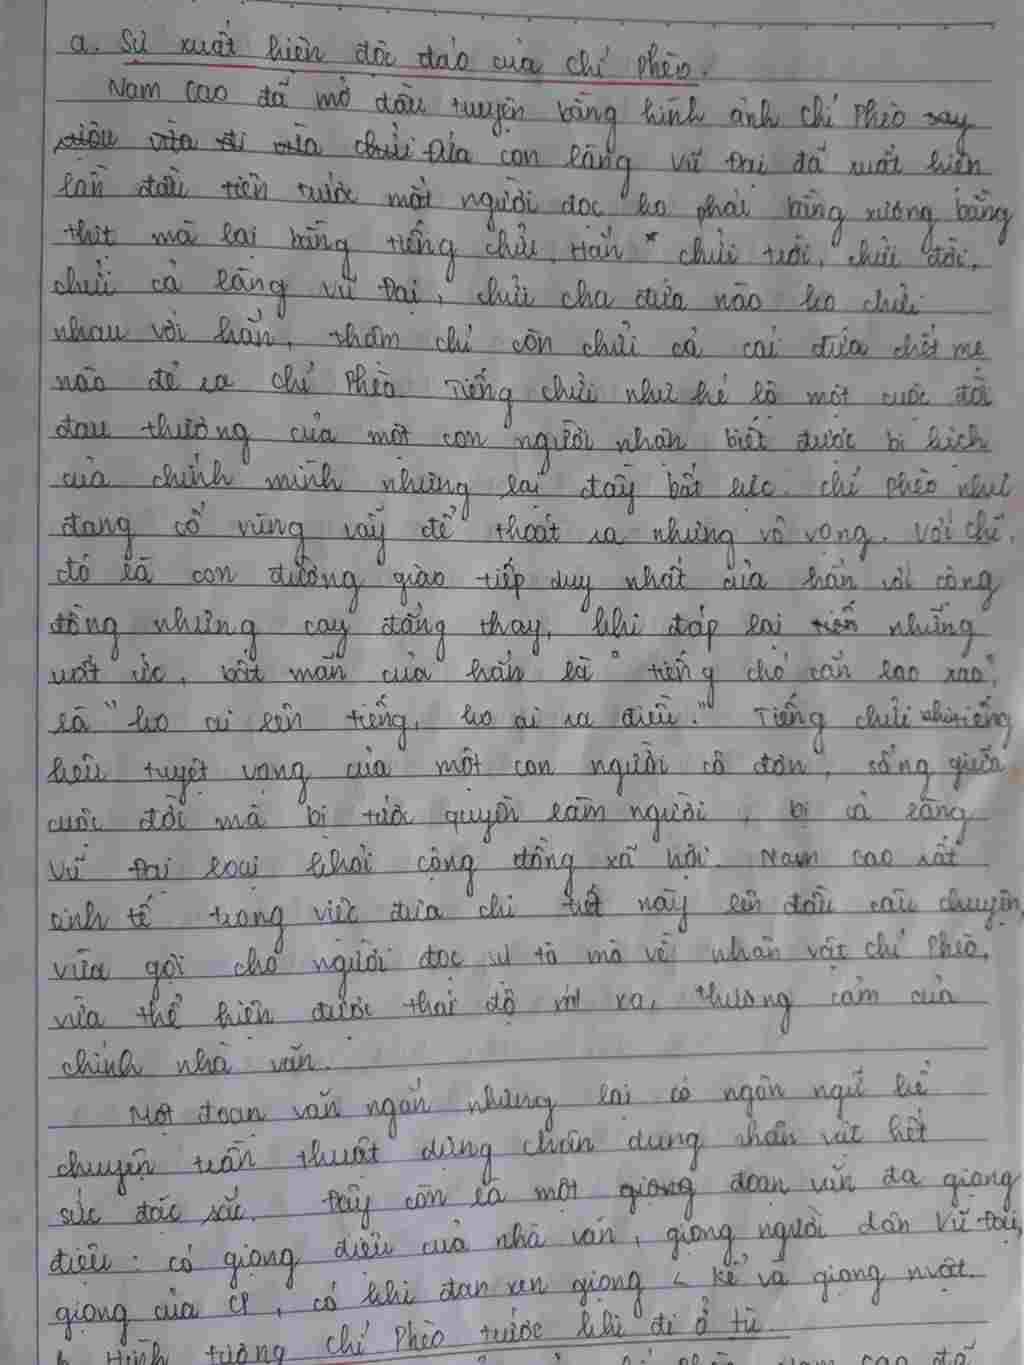 a. Sự xuất hiện độc đáo của Chí Phèo.
Nam Cao đã mở đầu truyện bằng hình ảnh Chí Phèo say
rượu vừa đi vừa chửi. Đứa con làng Vũ Đại đã xuất hiện
lần đầu tiên trước mắt người đọc ko phải bằng xương bằng
thịt mà lại bằng tiếng chửi. Hắn "chửi trời, chửi đời,
chửi cả làng Vũ Đại, chửi cha đứa nào ko chửi
nhau với hắn, thậm chí còn chửi cả cái đứa chết mẹ
nào đẻ ra Chí Phèo. Tiếng chửi như hé lộ một cuộc đời
đau thương của một con người nhận biết được bi kịch
của chính mình nhưng lại đầy bất lực. Chí Phèo như
đang cố vùng vẫy để thoát ra nhưng vô vọng. Với Chí,
đó là con đường giao tiếp duy nhất của hắn với cộng
đồng nhưng cay đắng thay, khi đáp lại những
uất ức, bất mãn của hắn là "tiếng chó cắn lao xao",
là "ko ai lên tiếng, ko ai ra điều." Tiếng chửi như tiếng
kêu tuyệt vọng của một con người cô đơn, sống giữa
cuộc đời mà bị tước quyền làm người, bị cả làng
Vũ Đại loại khỏi cộng đồng xã hội. Nam Cao rất
tinh tế trong việc đưa chi tiết này lên đầu câu chuyện,
vừa gợi cho người đọc sự tò mò về nhân vật Chí Phèo,
vừa thể hiện được thái độ xót xa, thương cảm của
chính nhà văn.
Một đoạn văn ngắn nhưng lại có ngôn ngữ kể
chuyện trần thuật dựng chân dung nhân vật hết
sức đặc sắc. Đây còn là một giọng đoạn văn đa giọng
điệu: có giọng điệu của nhà văn, giọng người dân Vũ Đại,
giọng của CP, có khi đan xen giọng < kể và giọng nvật.
b. Hình tượng Chí Phèo trước khi đi ở tù